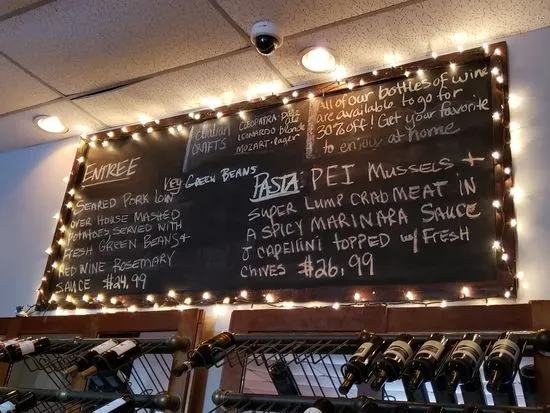 ENTREE
SEARED PORK LOIN
OVER HOUSE MASHED
POTATOES, SERVED WITH
FRESH GREEN BEANS &
RED WINE ROSEMARY
SAUCE $24.99
Veg GREEN BEANS
CRAFTS
CLEOPATRA
LEONARDO blonde
MOZART-lager
All of our bottles of wine
are available to go for
30% off! Get your favorite
to enjoy at home
PASTA: PEI MUSSELS +
SUPER LUMP CRAB MEAT IN
A SPICY MARINARA SAUCE
CAPELLINI TOPPED w/ FRESH
CHIVES $26.99